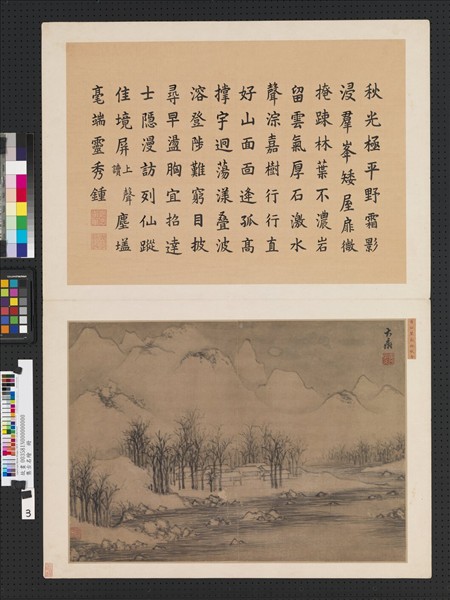 秋光極平野霜影
浸羣峯矮屋扉微
掩踈林葉不濃岩
留雲氣厚石激水
聲淙嘉樹行行直
好山面面逢孤高
撐宇迥蕩漾疊波
溶登陟難窮目披
尋早盪胸宜招達
士隱漫訪列仙蹤
佳境屏上聲讀塵壒
毫端靈秀鍾
3